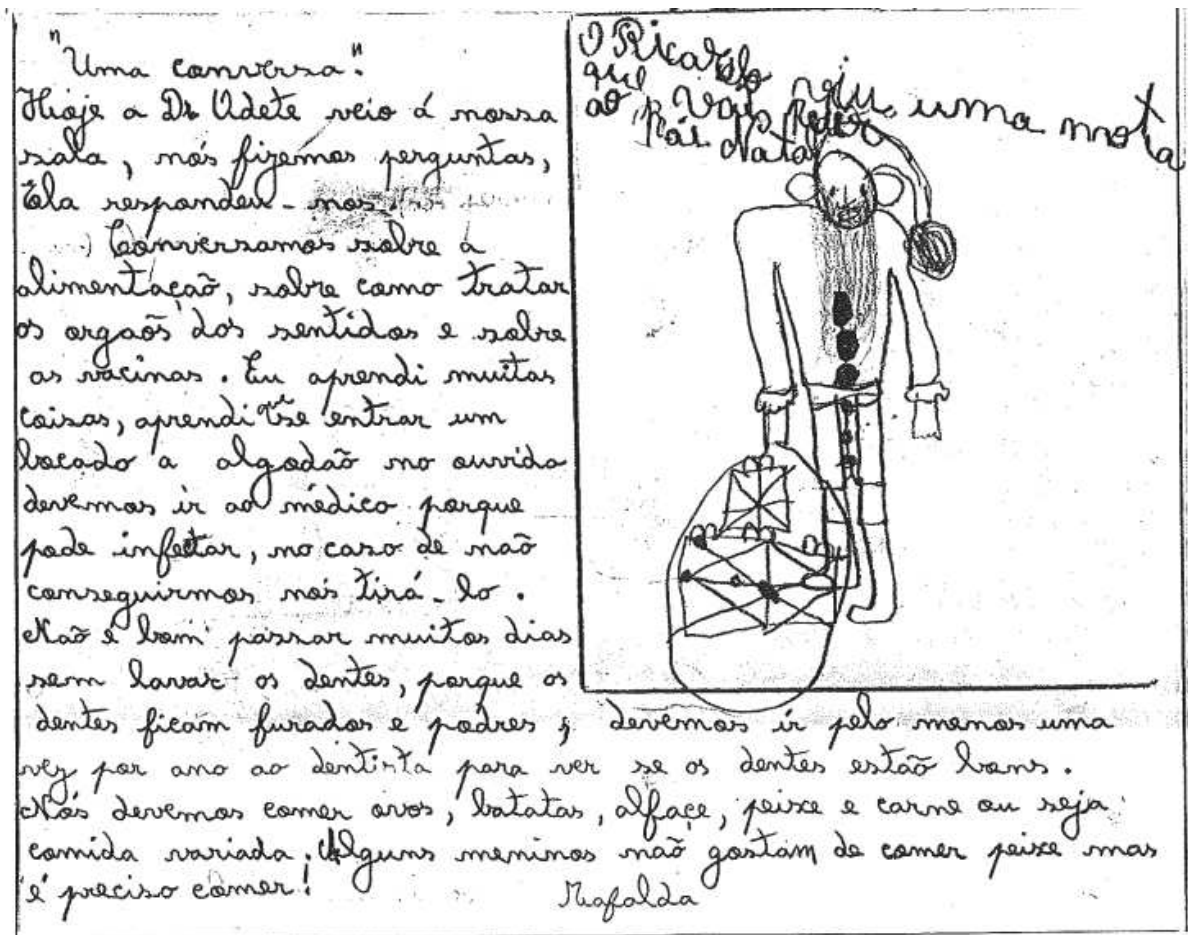 "Uma conversa".
Hoje a Dr Odete veio á nossa
sala, nós fizemos perguntas,
Ela respondeu-nos.
Conversamos sobre a
alimentaçaõ, sobre como tratar
os orgaõs dos sentidos e sobre
as vacinas. Eu aprendi muitas
coisas, aprendi que se entrar um
bocado a algodaõ no ouvido
devemos ir ao médico porque
pode infectar, no caso de naõ
conseguirmos nós tirá-lo.
Naõ é bom passar muitos dias
sem lavar os dentes, porque os
dentes ficam furados e pódres; devemos ir pelo menos uma
vez por ano ao dentista para ver se os dentes estaõ bons.
Nós devemos comer ovos, batatas, alfaçe, peixe e carne ou seja
comida variada. Alguns meninos naõ gostam de comer peixe mas
é preciso comer!
Mafalda
O Ricardo viu uma mota
que vai pedir
ao Pai Natal